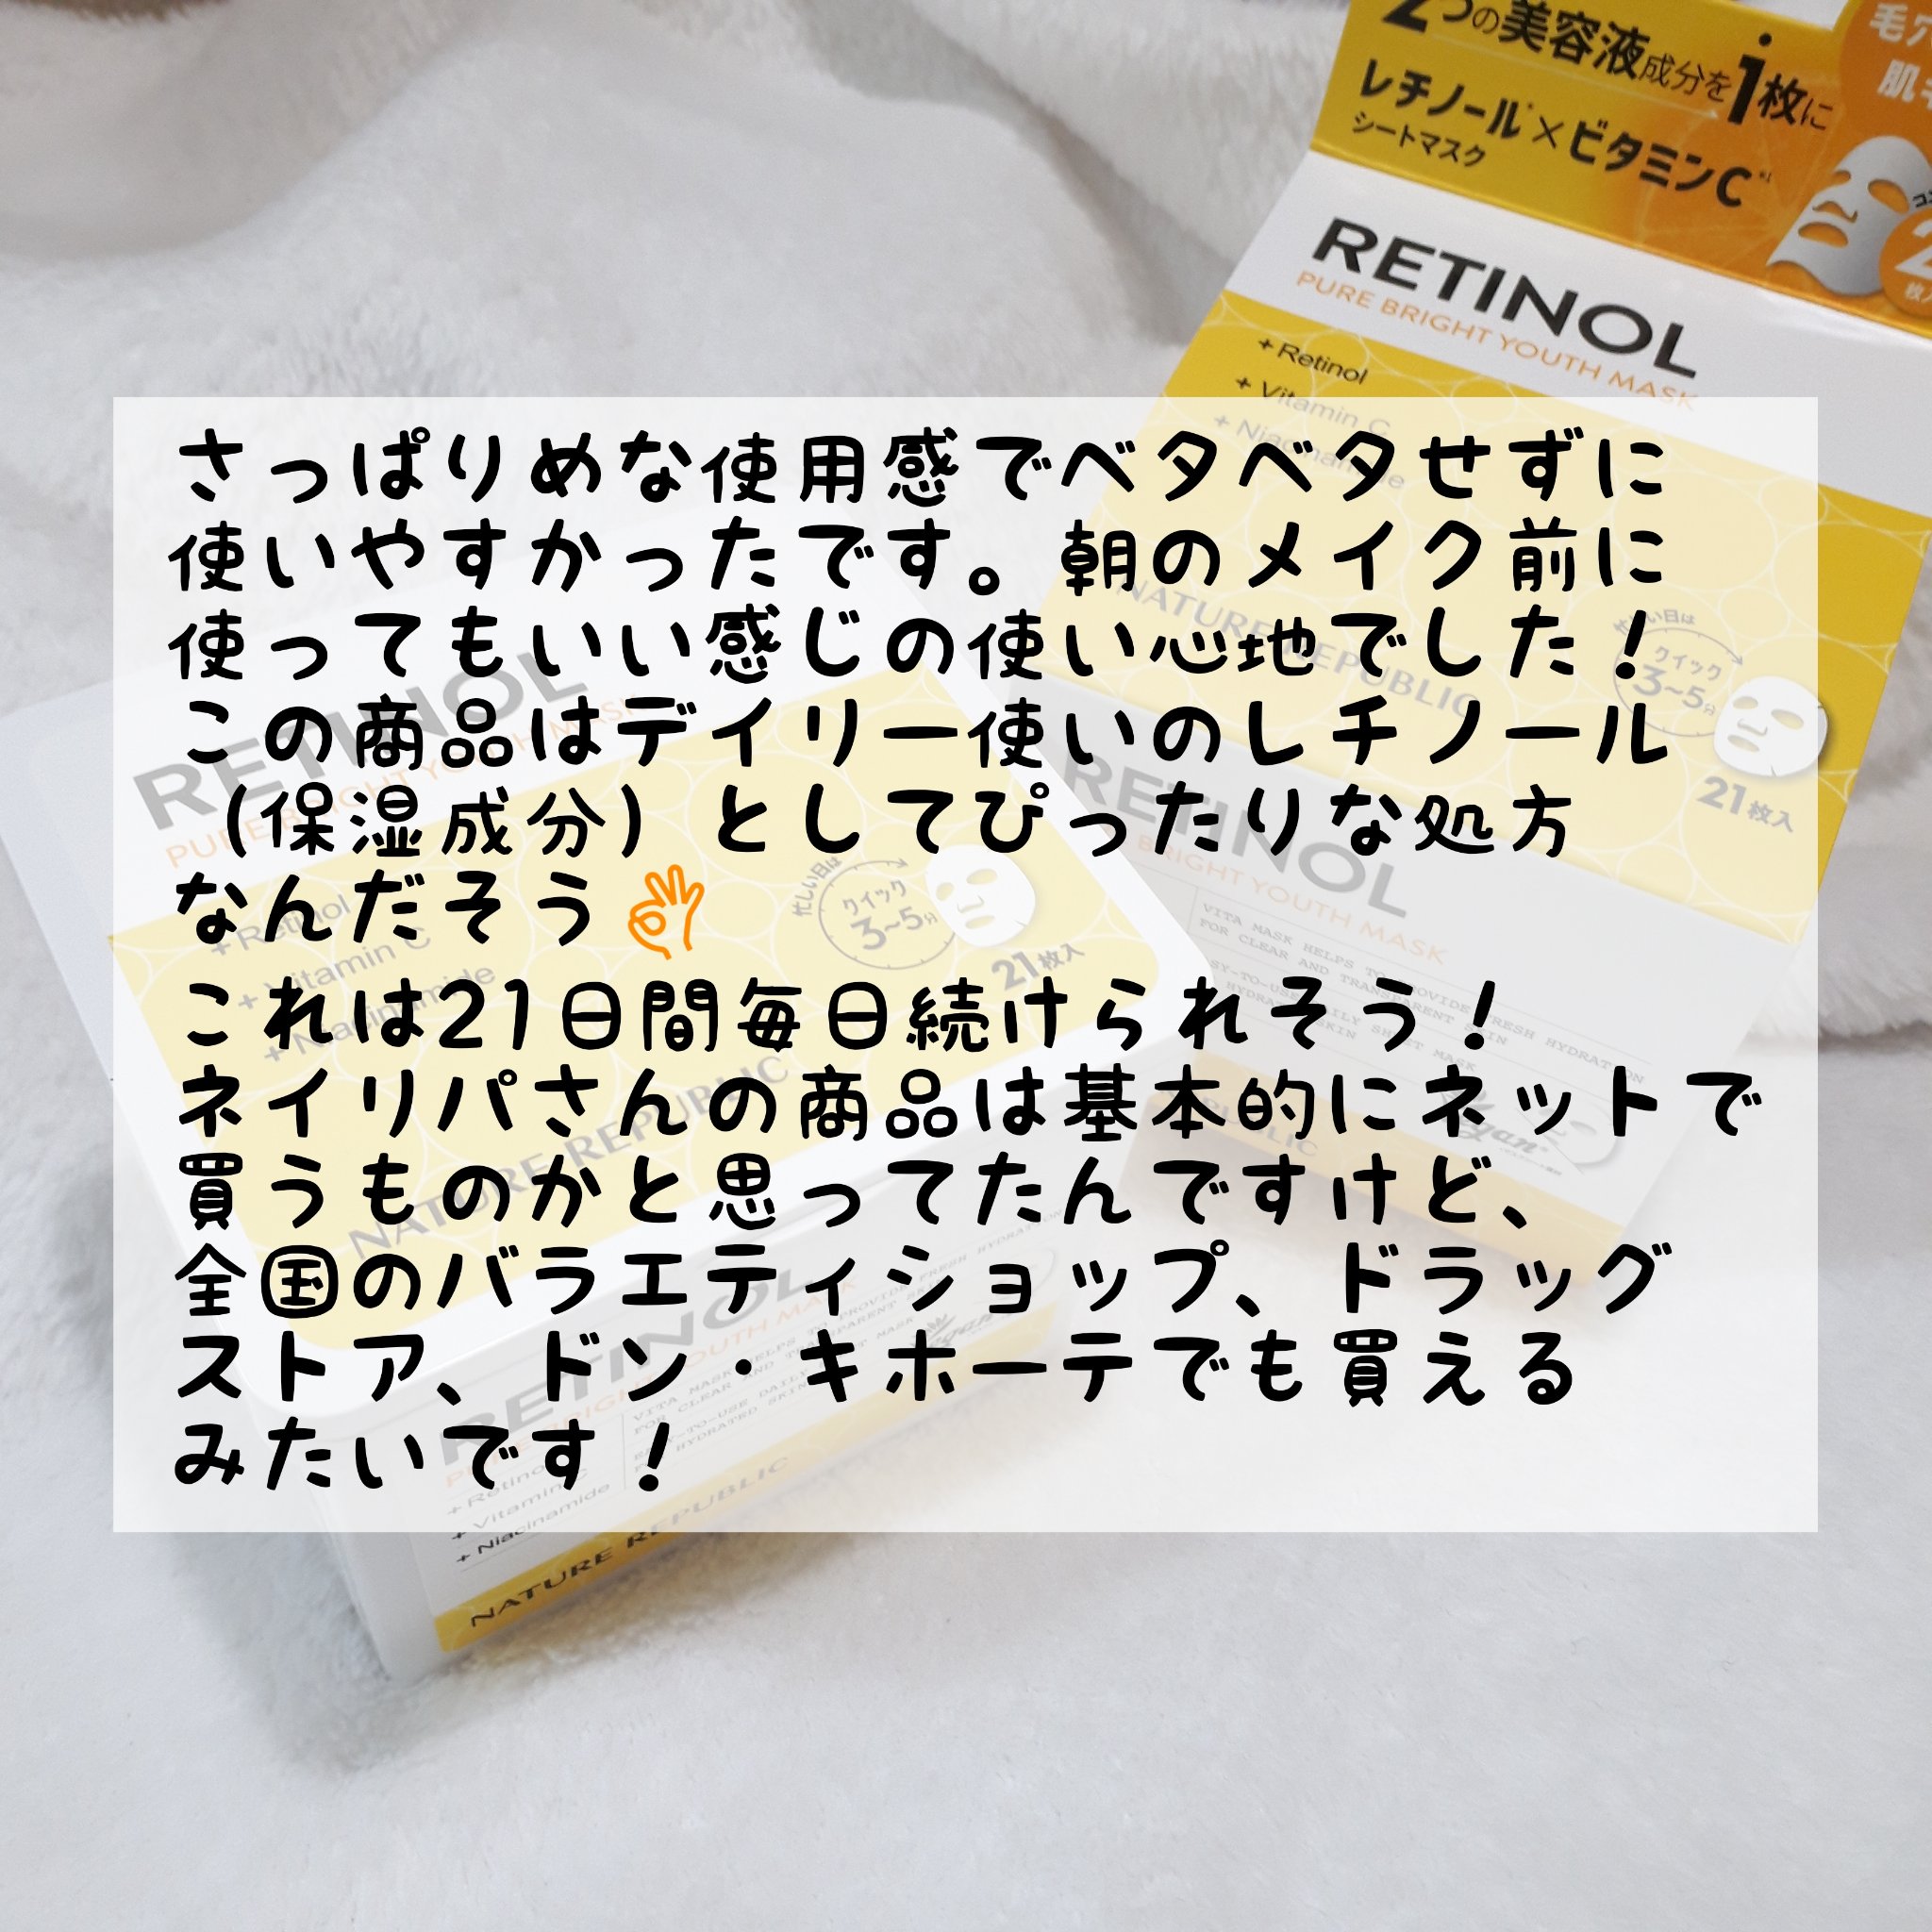 2つの美容液成分を1枚に
レチノール*×ビタミンC
シートマスク
RETINOL
PURE BRIGHT YOUTH MASK
+ Retinol
+ Vitamin C
+ Niacinamide
NATURE REPUBLIC
忙しい日は
クイック
3~5分
21枚入
さっぱりめな使用感でベタベタせずに
使いやすかったです。朝のメイク前に
使ってもいい感じの使い心地でした!
この商品はデイリー使いのレチノール
(保湿成分)としてぴったりな処方
なんだそう👌
これは21日間毎日続けられそう!
ネイリパさんの商品は基本的にネットで
買うものかと思ってたんですけど、
全国のバラエティショップ、ドラッグ
ストア、ドン・キホーテでも買える
みたいです!
RETINOL
PURE BRIGHT YOUTH MASK
+ Retinol
+ Vitamin C
+ Niacinamide
忙しい日は
クイック
3~5分
21枚入
NATURE REPUBLIC
RETINOL
BRIGHT YOUTH MASK
VITA MASK HELPS TO PROVIDE FRESH HYDRATION
FOR CLEAR AND TRANSPARENT SKIN
RETINOL
+ Retinol
+ Vitamin C
+ Niacinamide
NATURE REPUBLIC